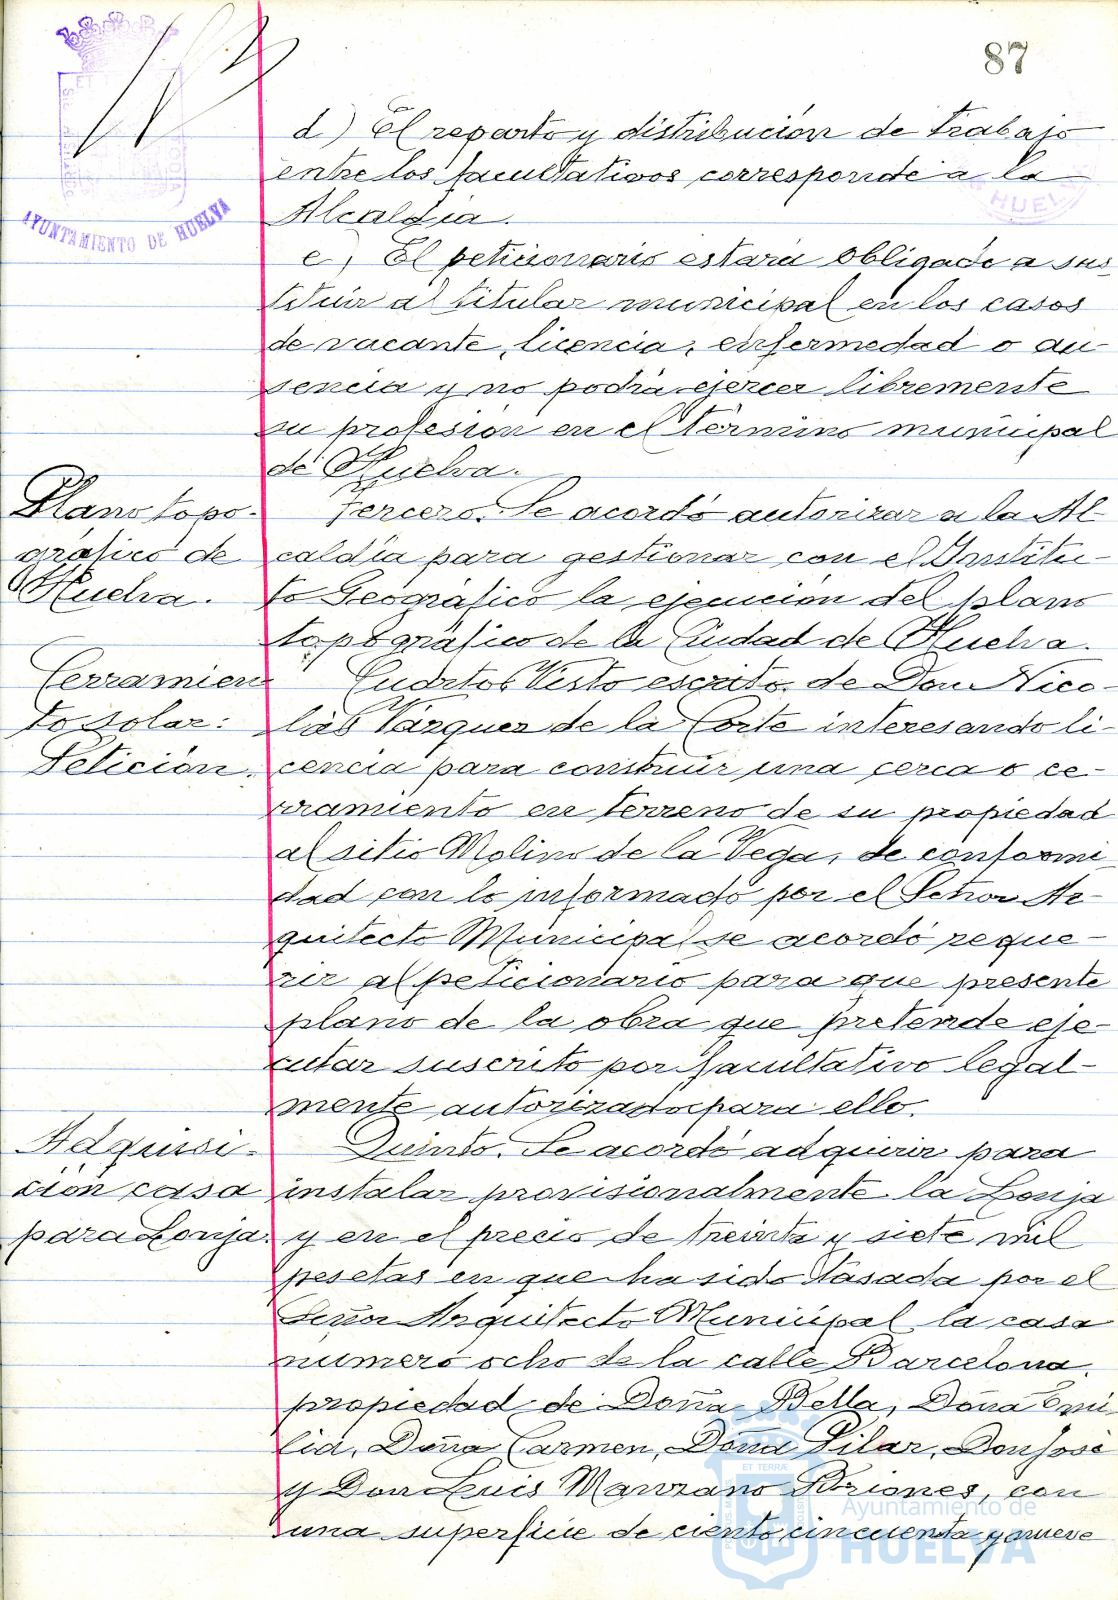 87
AYUNTAMIENTO DE HUELVA
HUEL
d) El reparto y distribución de trabajo
entre los facultativos corresponde a la
Alcaldía.
e) El peticionario estará obligado a sus-
tituir al titular municipal en los casos
de vacante, licencia, enfermedad o au-
sencia y no podrá ejercer libremente
su profesión en el término municipal
de Huelva.
Plano topo-
gráfico de
Huelva.
Tercero. Se acordó autorizar a la Al-
caldía para gestionar con el Institu-
to Geográfico la ejecución del plano
topográfico de la Ciudad de Huelva.
Cerramien
to solar:
Petición.
Cuarto. Visto escrito de Don Nico-
lás Vázquez de la Corte interesando li-
cencia para construir una cerca o ce-
rramiento en terreno de su propiedad
al sitio Molino de la Vega, de conformi
dad con lo informado por el Señor Ar-
quitecto Municipal se acordó reque-
rir al peticionario para que presente
plano de la obra que pretende eje-
cutar suscrito por facultativo legal-
mente autorizado para ello.
Adquisi-
ción casa
para Lonja.
Quinto. Se acordó adquirir para
instalar provisionalmente la Lonja
y en el precio de treinta y siete mil
pesetas en que ha sido tasada por el
Señor Arquitecto Municipal la casa
número ocho de la calle Barcelona,
propiedad de Doña Bella, Doña Emi
lia, Doña Carmen, Doña Pilar, Don José
y Don Luis Manzano Briones, con
una superficie de ciento cincuenta y nueve
Ayuntamiento de
HUELVA